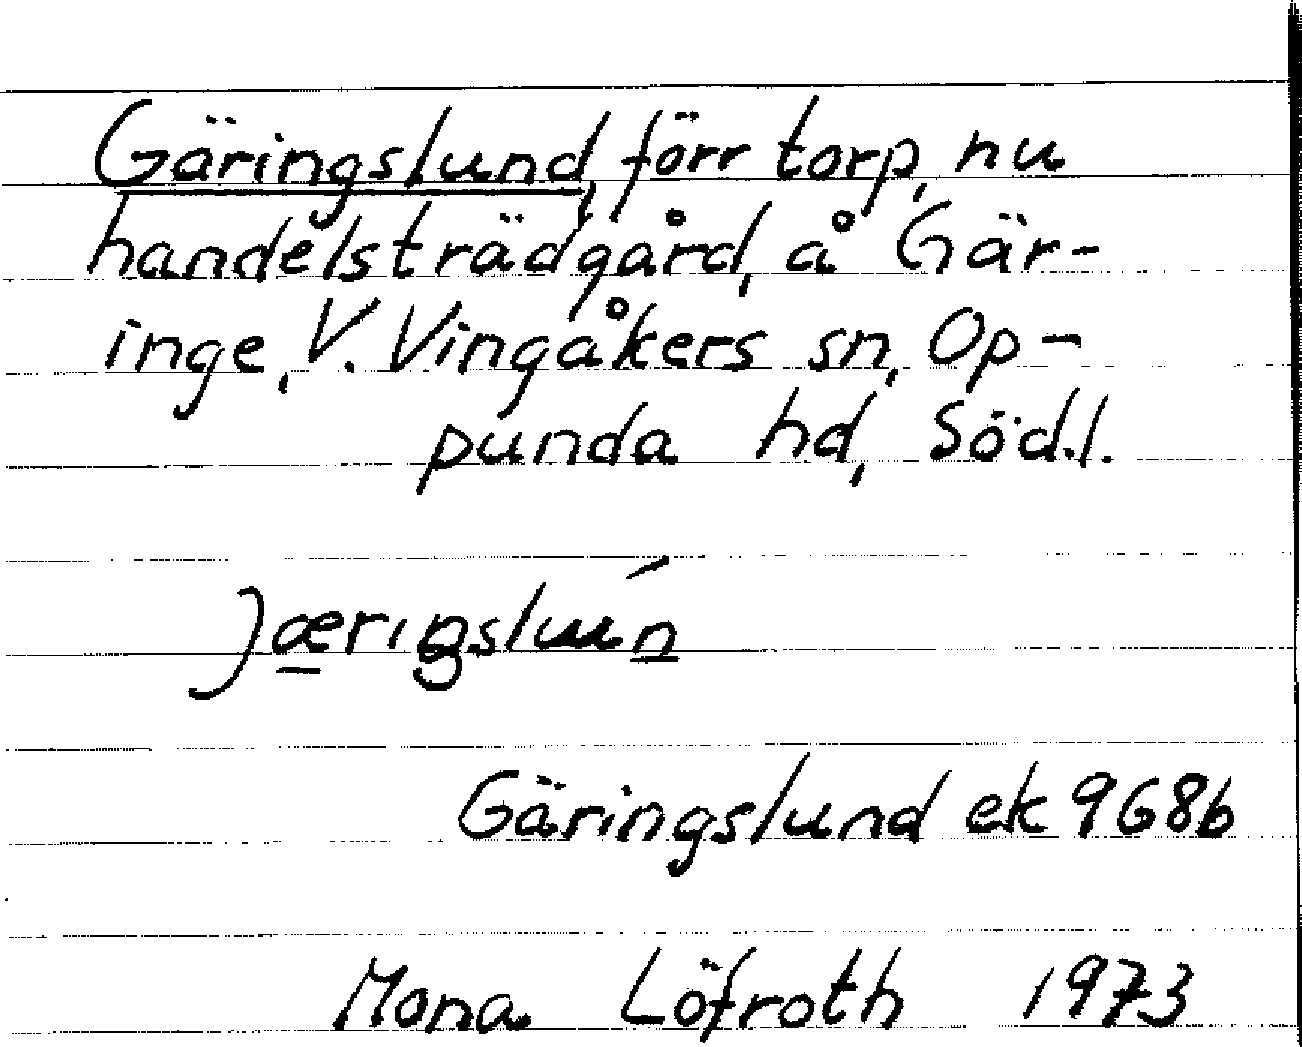 Gäringslund, förr torp, nu
handelsträdgård, å Gär-
inge, V. Vingåkers sn, Op-
punda hd, Söd.l.
Gäringslund ek 968b
Mona Löfroth 1973